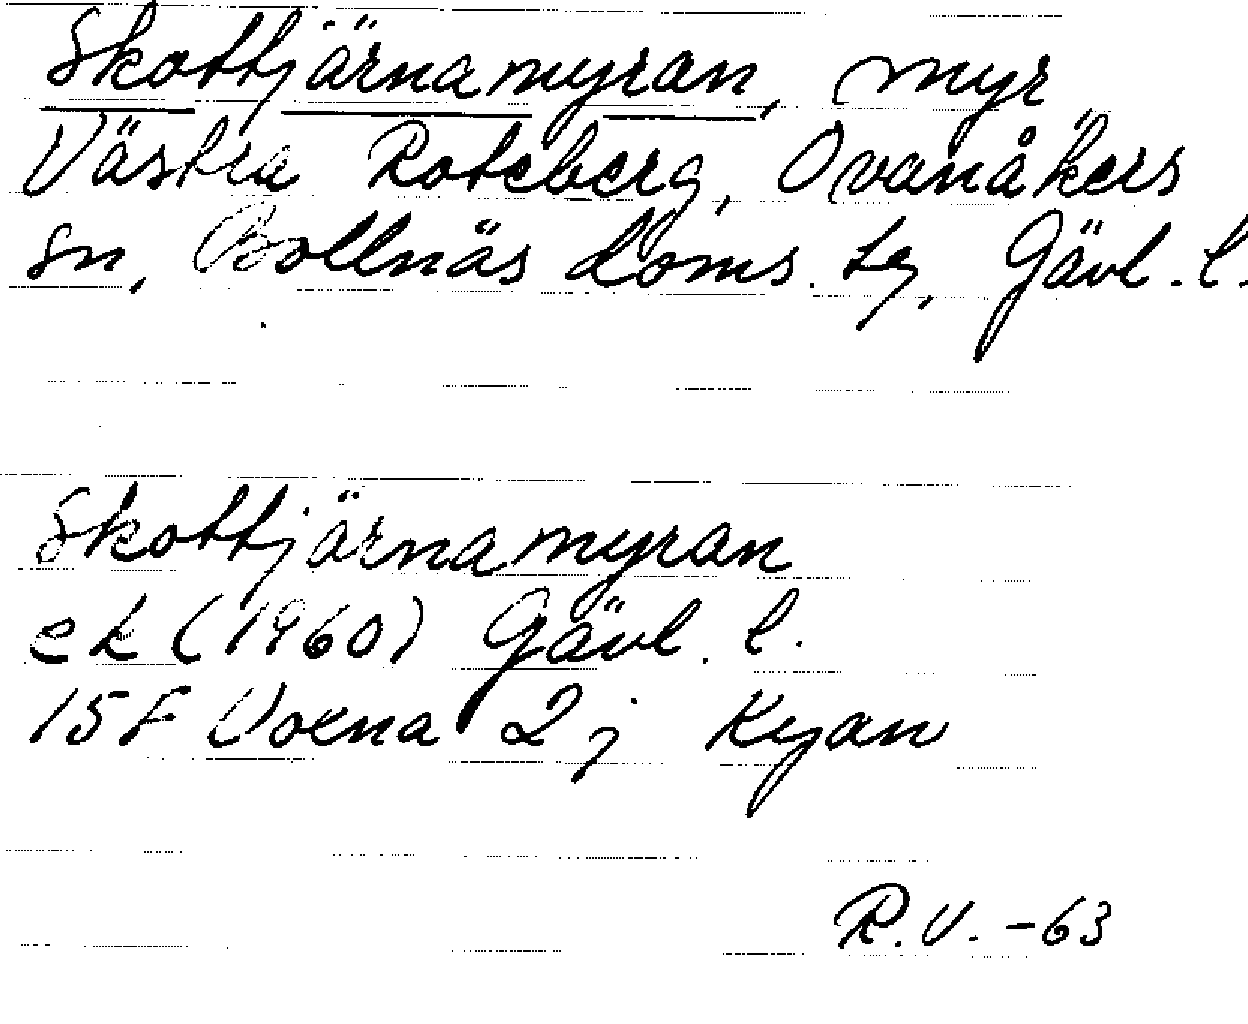 Skottjärnamyran, myr
Västra Roteberg, Ovanåkers
sn, Bollnäs doms. tg, Gävl. l.
Skottjärnamyran
ek (1960) Gävl. l.
15F Voxna 2j Kyan
R.V. -63